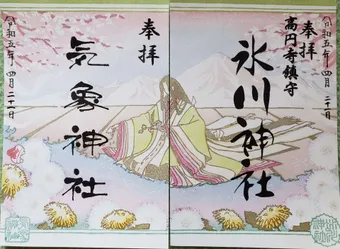 奉拝
高円寺鎮守
氷川神社
令和五年四月二十一日
奉拝
気象神社
令和五年四月二十一日